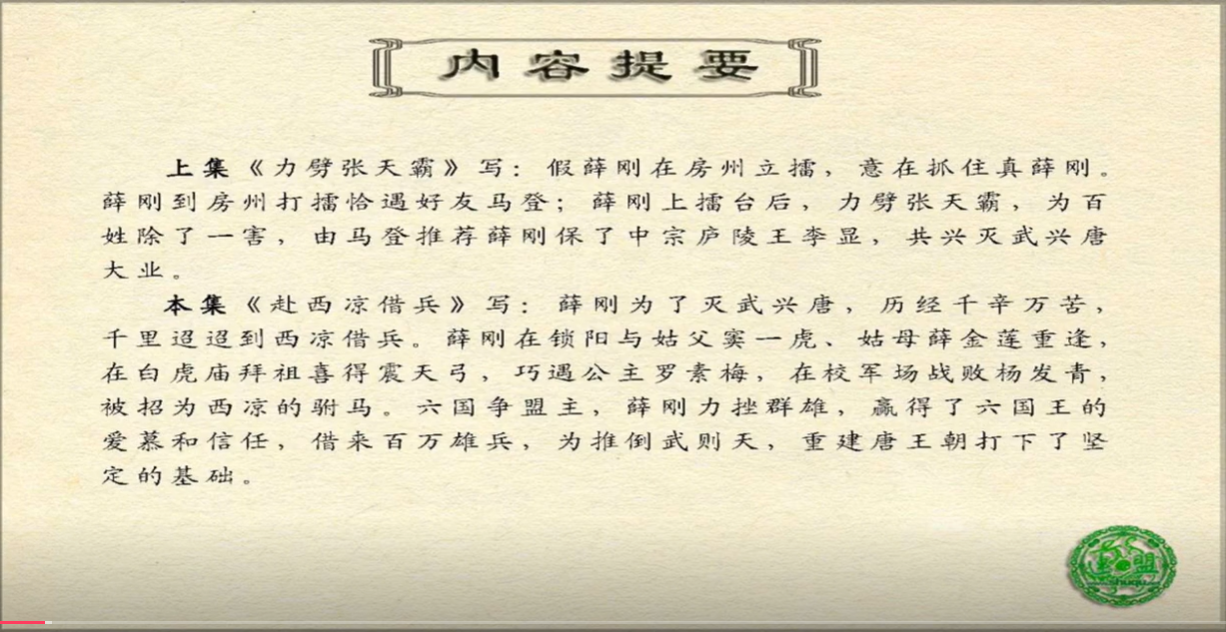 内容提要
上集《力劈张天霸》写：假薛刚在房州立擂，意在抓住真薛刚。
薛刚到房州打擂恰遇好友马登；薛刚上擂台后，力劈张天霸，为百
姓除了一害，由马登推荐薛刚保了中宗庐陵王李显，共兴灭武兴唐
大业。
本集《赴西凉借兵》写：薛刚为了灭武兴唐，历经千辛万苦，
千里迢迢到西凉借兵。薛刚在锁阳与姑父窦一虎、姑母薛金莲重逢，
在白虎庙拜祖喜得震天弓，巧遇公主罗素梅，在校军场战败杨发青，
被招为西凉的驸马。六国争盟主，薛刚力挫群雄，赢得了六国王的
爱慕和信任，借来百万雄兵，为推倒武则天，重建唐王朝打下了坚
定的基础。
盟